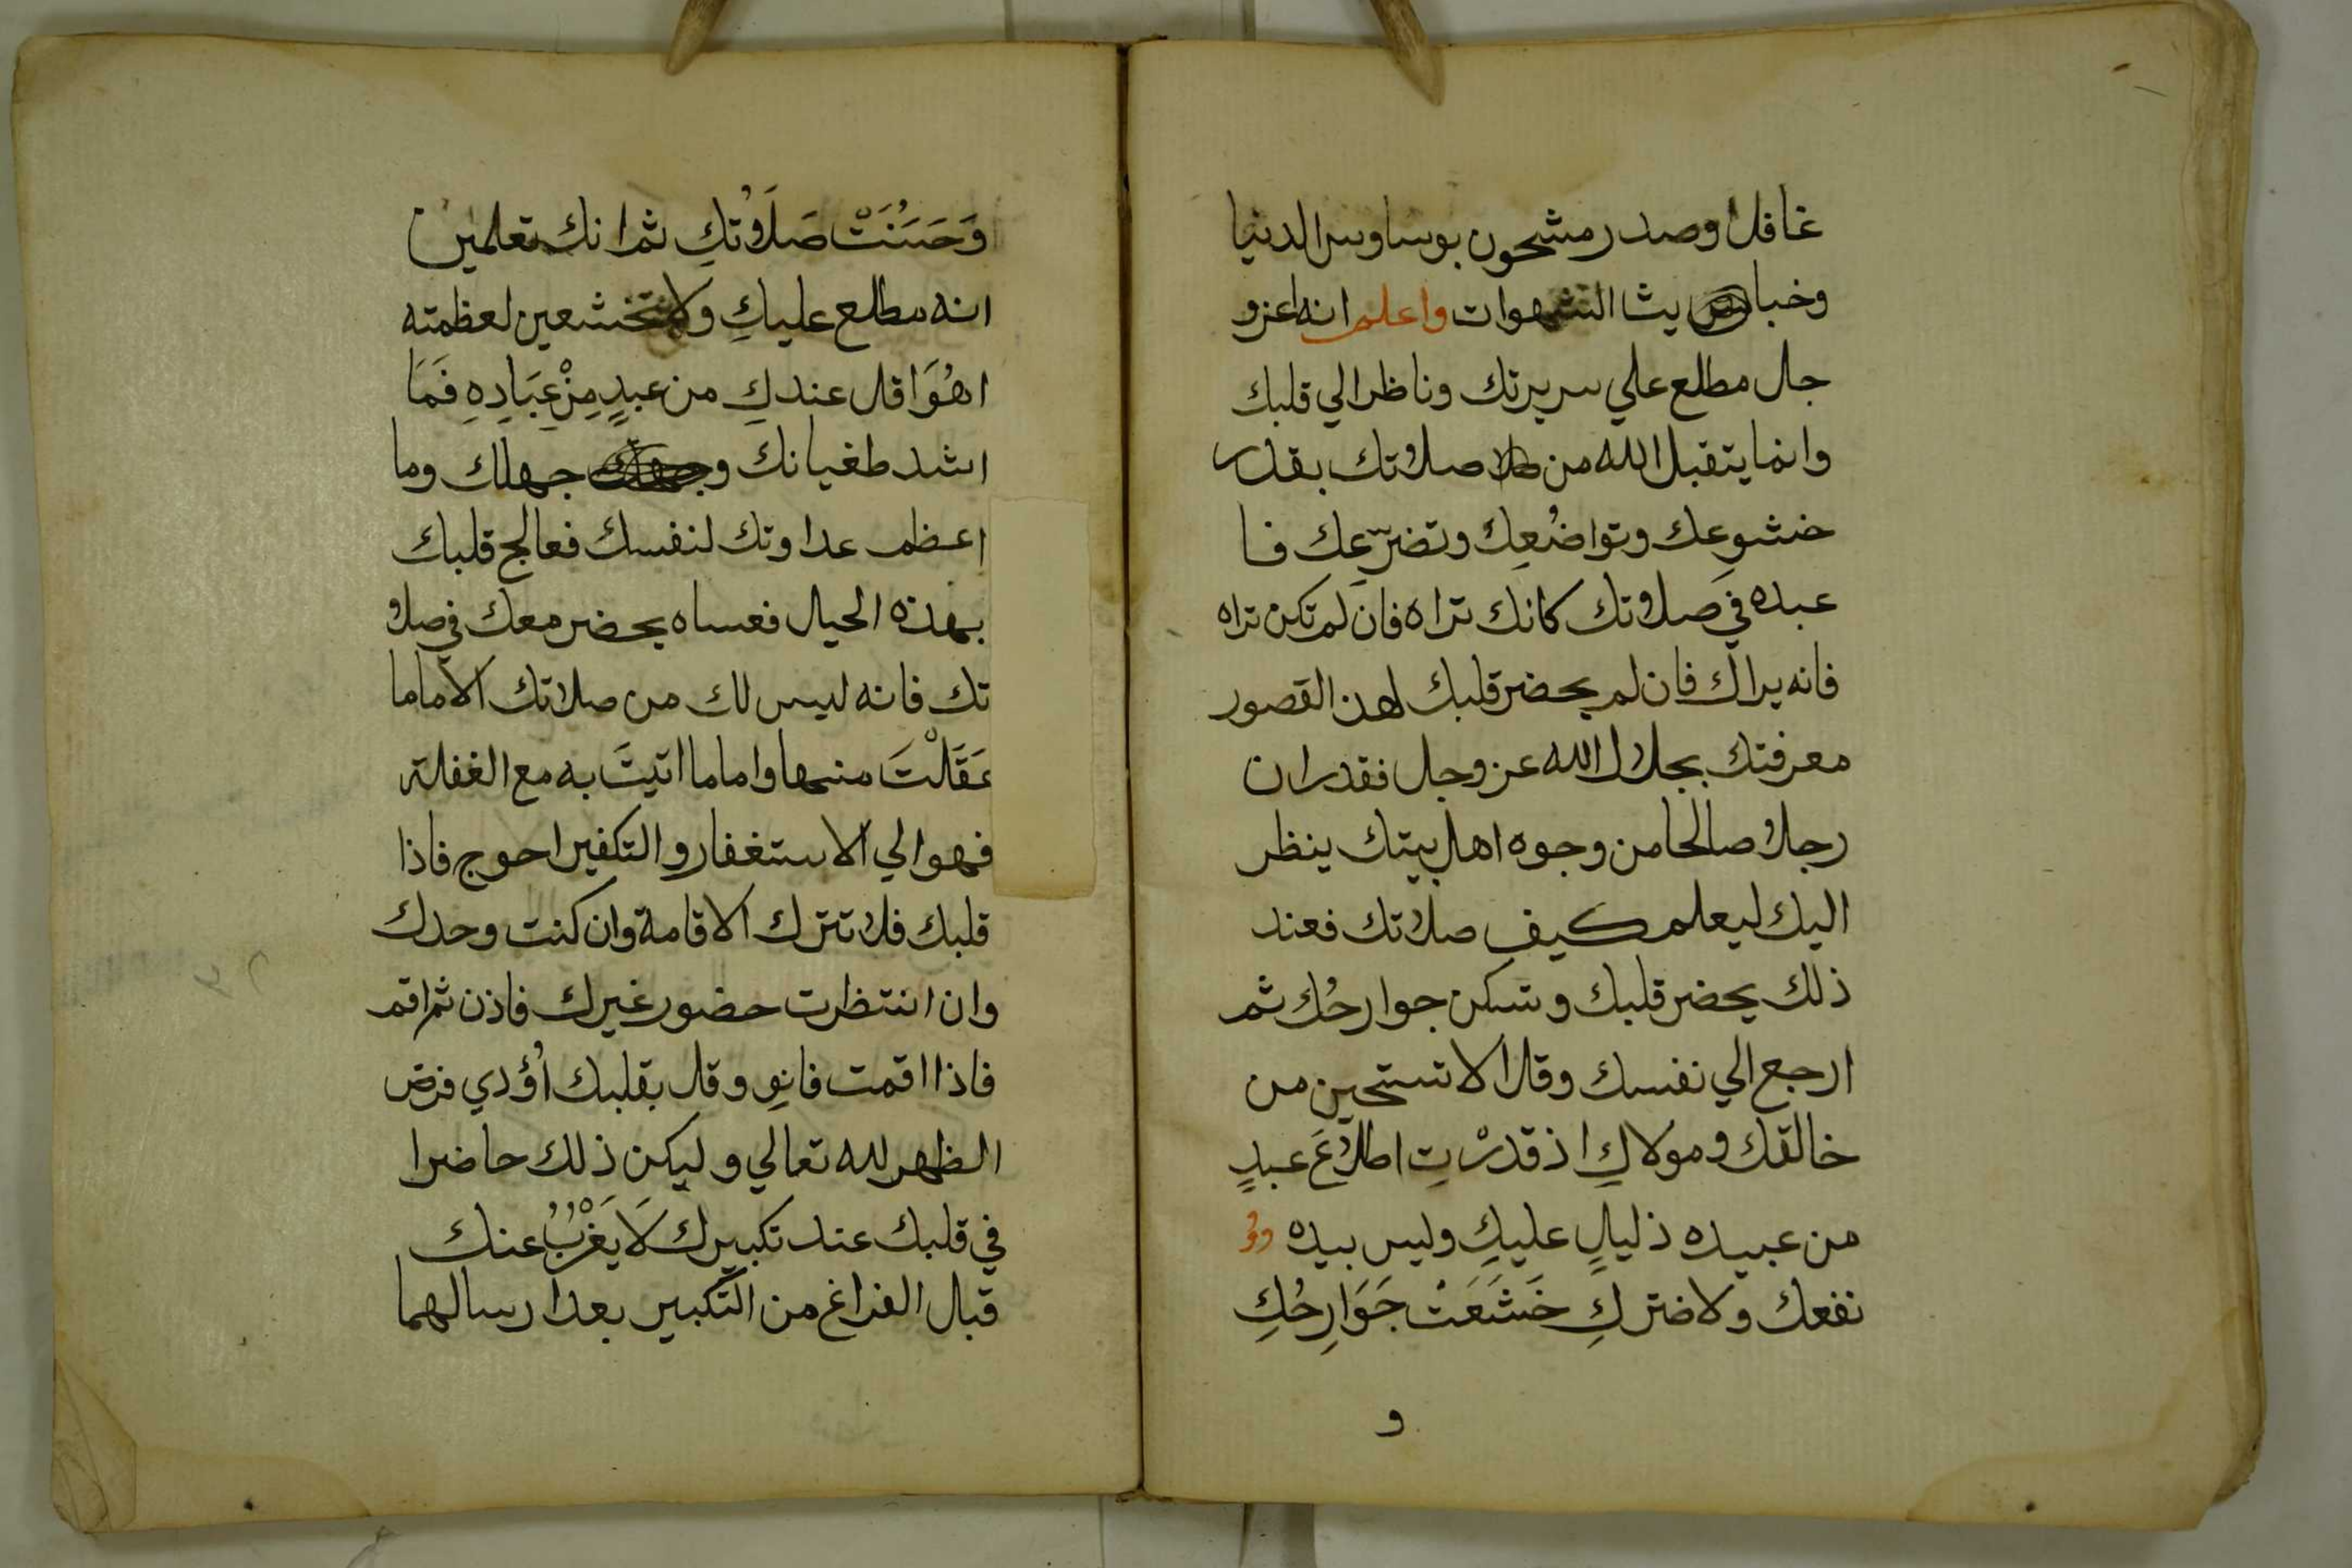 غافل وصدر مشحون بوساوس الدنيا
وخبا يث الشهوات واعلم انه عزو
جل مطلع علي سريرتك وناظر الي قلبك
وانما يتقبل الله من صلاتك بقدر
خشوعك وتواضُعِك وتضرّعِك فا
عبده في صلاتك كانك تراه فان لم تكن تراه
فانه يراك فان لم يحضر قلبك لهذ القصور
معرفتك بجلال الله عز وجل فقدر ان
رجلا صالحا من وجوه اهل بيتك ينظر
اليك ليعلم كيف صلاتك فعند
ذلك يحضر قلبك وتسكن جوارحُك ثم
ارجع الي نفسك وقل الا تستحين من
خالقك ومولاكِ اذ قدرْتِ اطلاعَ عبدٍ
من عبيده ذليلٍ عليكِ وليس بيده
نفعك ولا ضركِ خَشَعَتْ جَوَارِحُكِ
و
وَحَسَنَتْ صَلَاتُكِ ثم انك تعلمين
انه مطلع عليكِ ولا تخشعين لعظمته
اهُوَ اقل عندكِ من عبدٍ مِنْ عِبَادِهِ فَمَا
اشد طغيانك و جهلك وما
اعظم عداوتك لنفسك فعالج قلبك
بهذه الحيل فعساه يحضر معك في صلا
تك فانه ليس لك من صلاتك الا ماما
عَقَلْتَ منها واما ما اتيتَ به مع الغفلة
فهو الي الاستغفار والتكفير احوج فاذا
قلبك فلا تترك الاقامة وان كنت وحدك
وان انتظرت حضور غيرك فاذن ثم اقم
فاذا اقمت فانوِ وقل بقلبك اُؤدي فرض
الظهر لله تعالي وليكن ذلك حاضرا
في قلبك عند تكبيرك لَا يَغْرُبُ عنك
قبل الفراغ من التكبير بعد ارسالهما